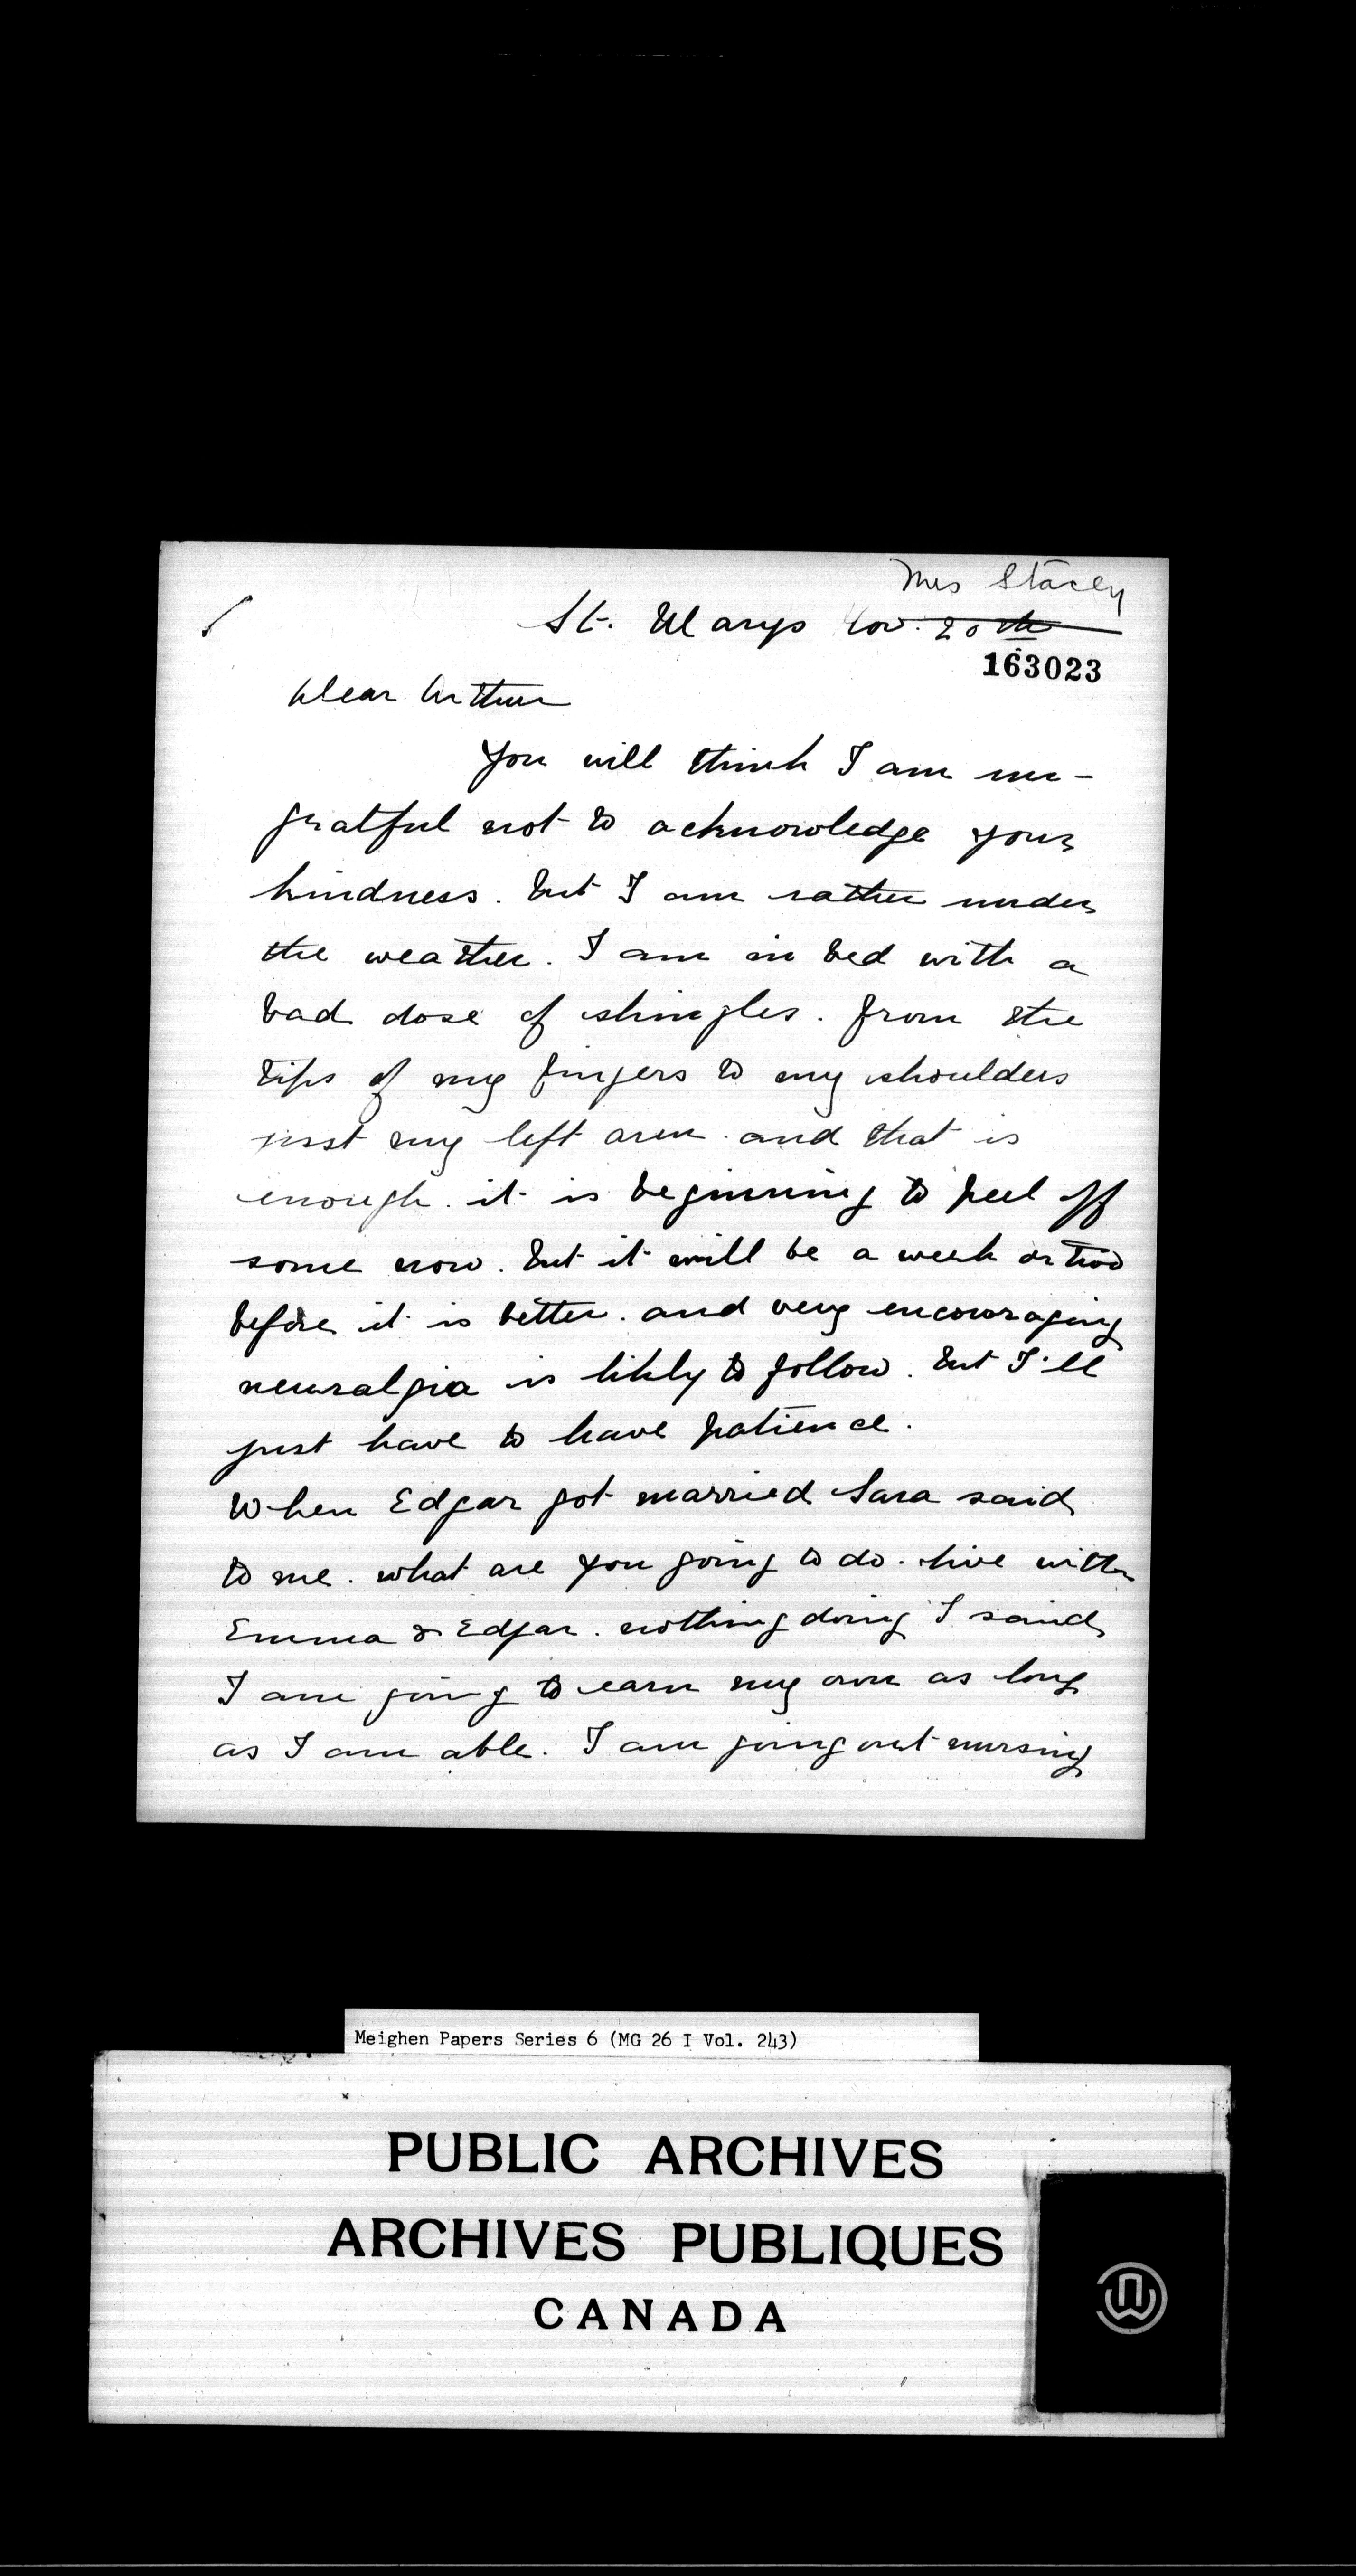 Mrs Stacey
St. Marys Nov. 20th
163023
Dear Arthur
You will think I am un-
gratful not to acknowledge your
kindness. but I am rather under
the weather. I am in bed with a
bad dose of shingles. from the
tips of my fingers to my shoulders
just my left arm. and that is
enough. it is beginning to peel off
some now. but it will be a week or two
before it is better. and very encouraging
neuralgia is likly to follow. but I'll
just have to have patience.
When Edgar got married Sara said
to me. what are you going to do. live with
Emma & Edgar. nothing doing I said
I am going to earn my own as long
as I am able. I am going out nursing
Meighen Papers Series 6 (MG 26 I Vol. 243)
PUBLIC ARCHIVES
ARCHIVES PUBLIQUES
CANADA